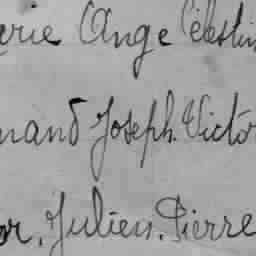 erie Ange Célestin
nand Joseph. Victor
or, Julien. Pierre